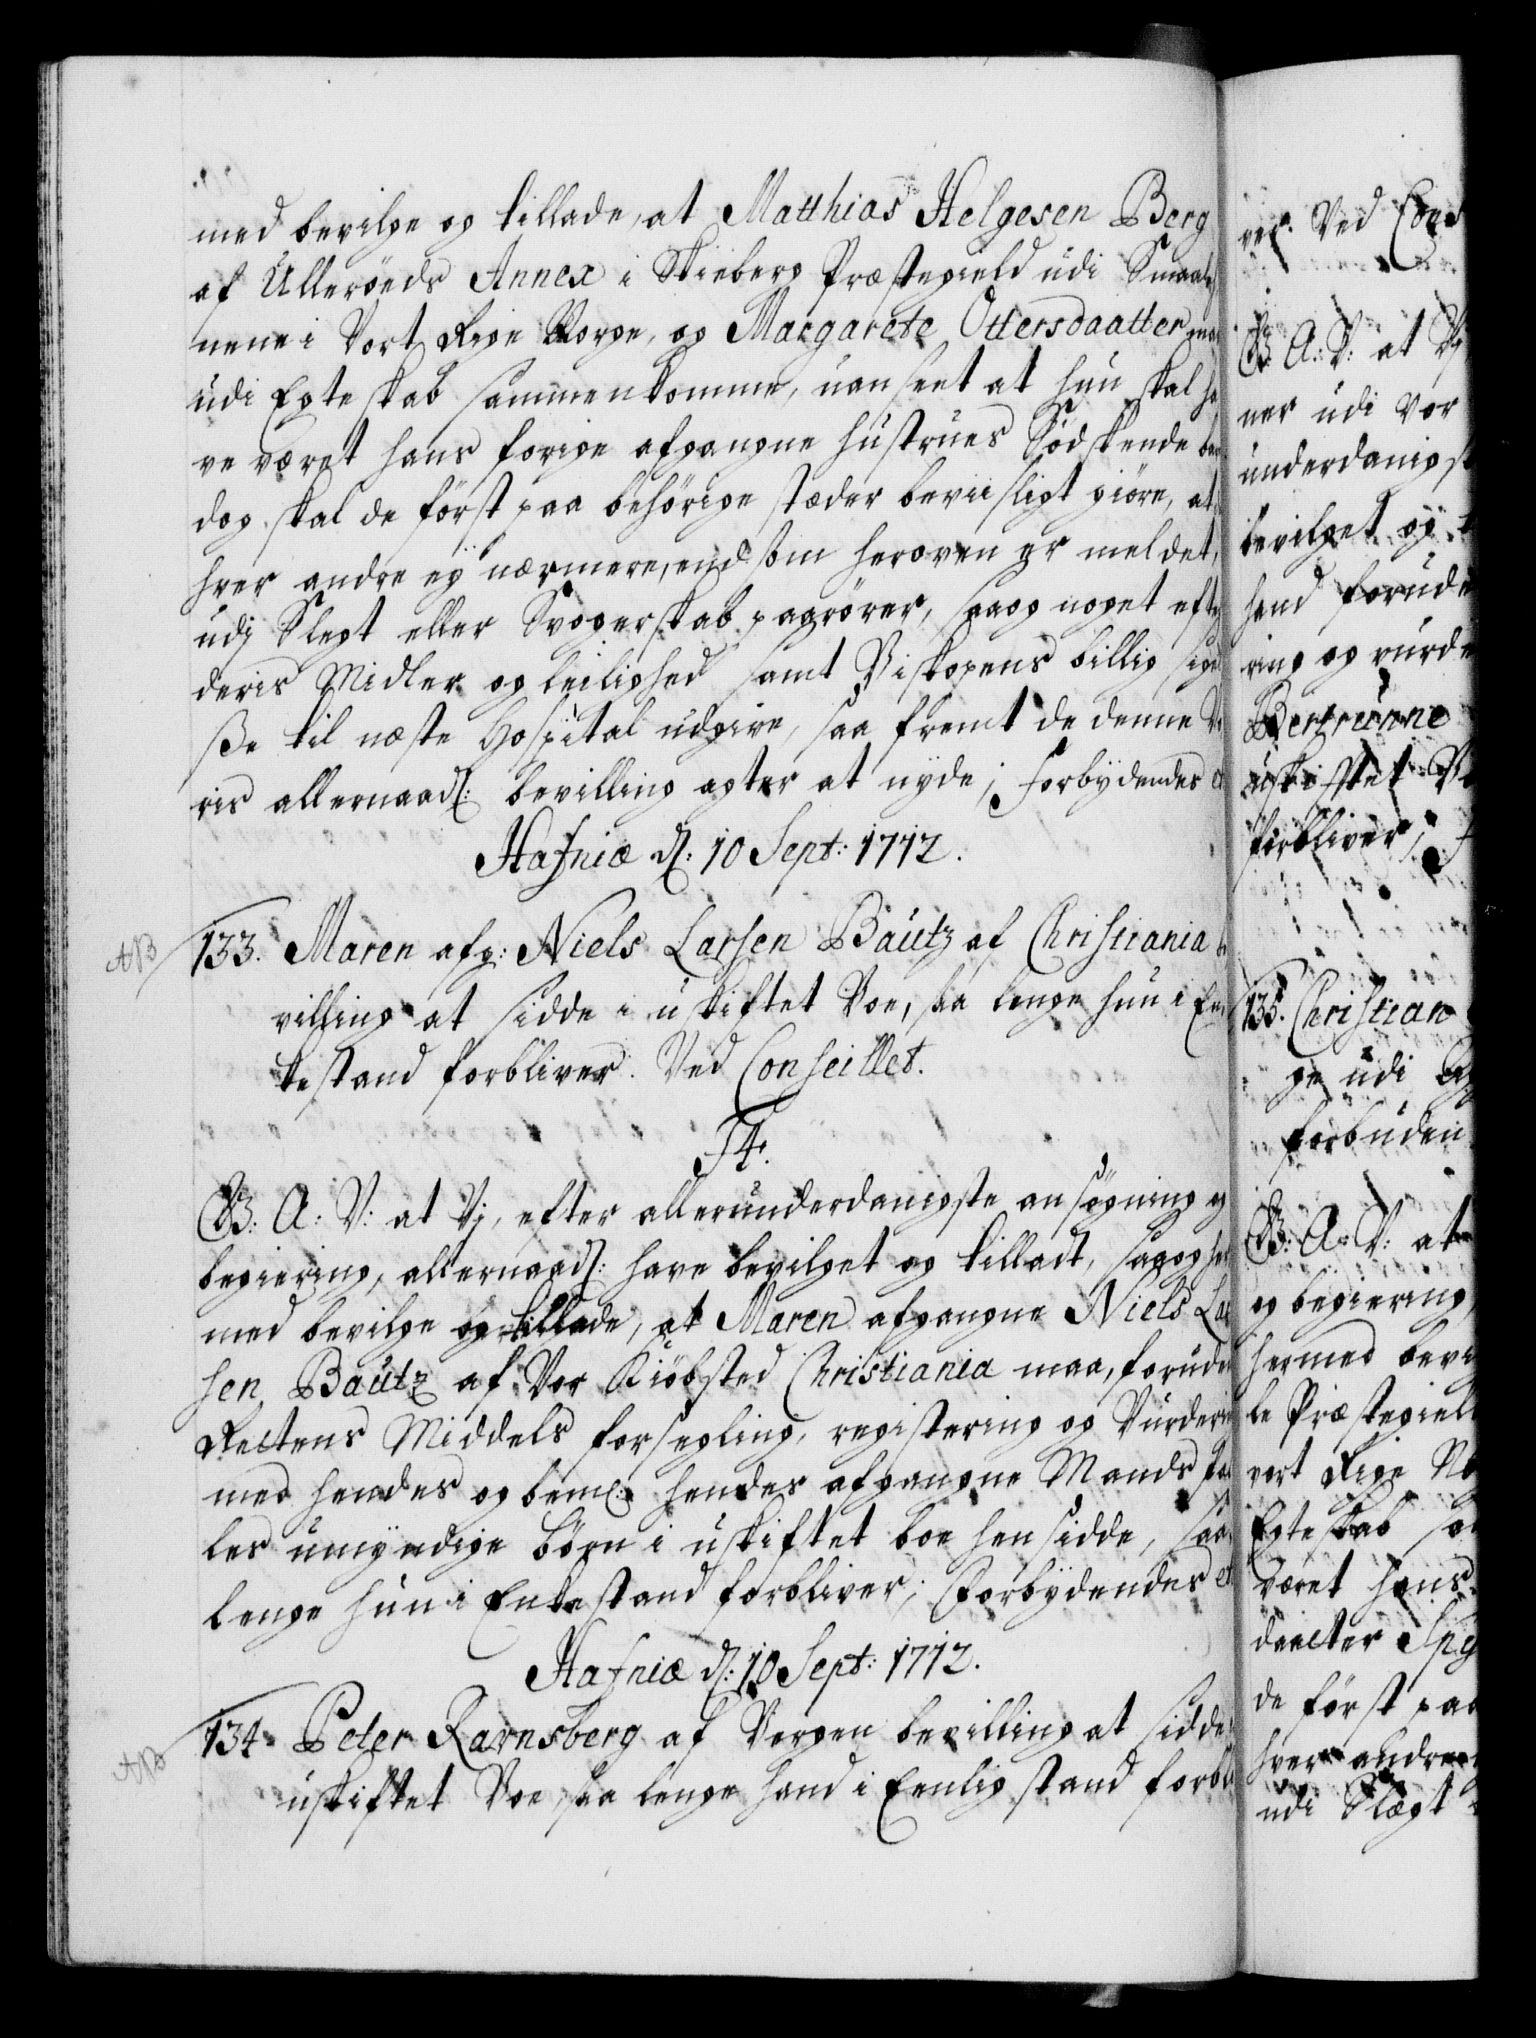 med bevilge og tillade, at Matthias Helgesen Berg
af Ullerøeds Annex i Skieberg Præstegield udi Smaale
nene i Vort Rige Norge, og Margarete Ottersdaatter maa
udi Egteskab sammenkomme, uanseet at hun skal ha
ve været hans forige afgangne Hustrues Sødskende
dog skal de först paa behörige stæder beviisligt giöre, at
hver andre ey nærmere, end som heroven er meldet,
udj Slegt eller Svogerskab paarörer, saa og noget efter
deris Midler og leilighed samt Biskopens billig sigel
ße til næste Hospital udgive, saa fremt de denne Vo
ris allernaad: bevilling agter at nyde; Forbydendes et
Hafniæ d: 10 Sept: 1712.
AB
133. Maren afg: Niels Larsen Bautz af Christiania be
villing at sidde i uskiftet Boe, saa lenge hun i En
kestand forbliver. Ved Conseillet.
F4.
G: A: V: at Vj, efter allerunderdanigste ansögning og
begiering, allernaad: have bevilget og tilladt, saa og her
med bevilge og tillade, at Maren afgangne Niels Lar
sen Bautz af Vor Kiöbsted Christiania maa, foruden
Rettens Middels forsegling, registering og Vurdering
med hendes og bem: hendes afgangne Mands fæl
les umyndige börn i uskiftet boe hensidde, saa
lenge hun i Enkestand forbliver; Forbydendes et
Hafniæ d: 10 Sept: 1712.
AB
134. Peter Ravnsberg af Bergen bevilling at sidde i
uskiftet Boe, saa lenge hand i Eenlig stand forbli
ver. Ved Cons
G: A: V: at Vj
ner udi Vor
underdanigst
bevilget og t
hand forude
ring og vurde
uskiftet B
forbliver;
135. Christian
ge udi
forbuden
G: A: V: at
og begiering,
hermed bevi
le Præstegield
vort Rige No
Egteskab sa
været hans
daatter
de först paa
hver andre
udi Slægt